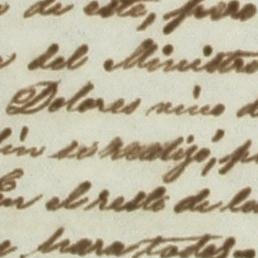 de este, pero
del Ministro
Dolores vino d
se realizó, p
En el resto de la
para todos